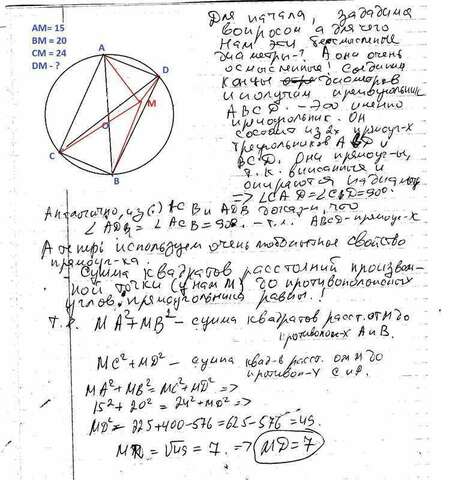 AM= 15
BM = 20
CM = 24
DM - ?
A
D
M
O
C
B
Для начала, зададимся
вопросом а для чего
нам эти бессмысленные
диаметры-? А они очень
осмысленные! Соединим
концы диаметров
и получим прямоугольник
ABCD. - это именно
прямоугольник. Он
состоит из 2х прямоуг-х
треугольников ABD и
BCD. Они прямоуг-ы,
т.к. вписанные и
опираются на диаметр
=> ∠CAD=∠CBD=90°.
Аналогично, из ACB и ADB докаж, что
∠ADB = ∠ACB = 90°. - т.е. ABCD-прямоуг-к
А теперь используем очень любопытное свойство
прямоуг-ка.
Сумма квадратов расстояний произволь-
ной точки (у нам M) до противоположных
углов прямоугольника равны!
т.е. MA²+MB² - сумма квадратов расст. от M до
противопол-х A и B.
MC²+MD² - сумма квад-в расст. от M до
противоп-х C и D.
MA²+MB²=MC²+MD² =>
15²+20²=24²+MD² =>
MD²=225+400-576=625-576=49.
=√49=7. => MD=7